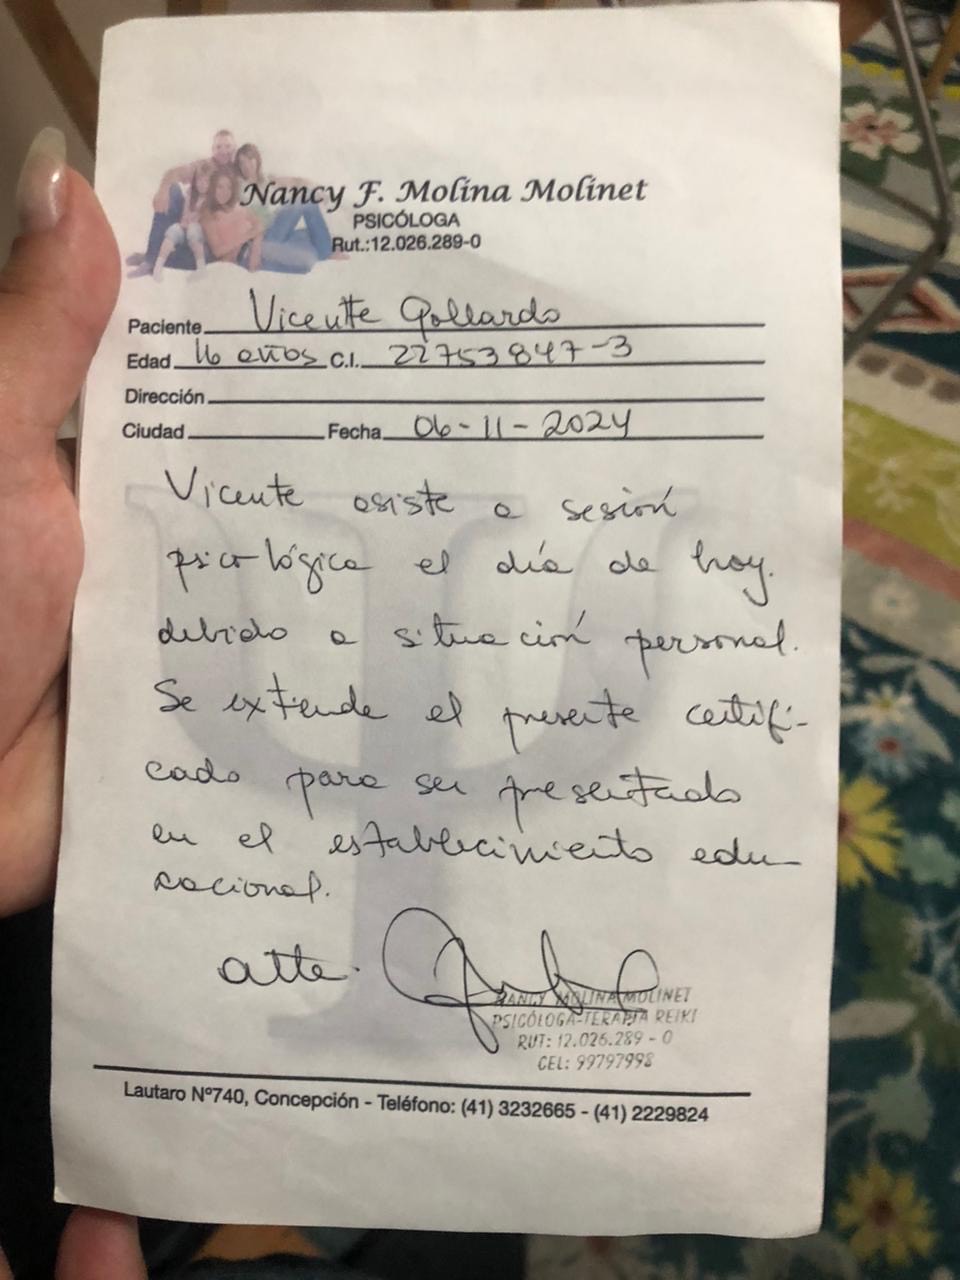 Nancy F. Molina Molinet
PSICÓLOGA
Rut.:12.026.289-0
Paciente Vicente Gallardo
Edad 16 años C.I. 22753847-3
Dirección
Ciudad Fecha 06-11-2024
Vicente asiste a sesión
psicológica el día de hoy.
debido a situación personal.
Se extiende el presente certifi-
cado para ser presentado
en el establecimiento edu-
cacional.
atte.
NANCY MOLINA MOLINET
PSICÓLOGA-TERAPIA REIKI
RUT: 12.026.289 - 0
CEL: 99797998
Lautaro Nº740, Concepción - Teléfono: (41) 3232665 - (41) 2229824